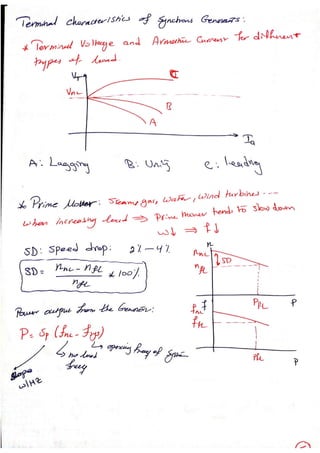 Terminal characteristics of Synchronous Generators:
* Terminal Voltage and Armature Current for different
types of load.
VT
VNL
C
B
A
Ia
A: Lagging B: Unity C: Leading
* Prime Mover: Steam, gas, water, wind turbines ---
when increasing load ⇒ Prime mover tends to slow down
ω↓ ⇒ f↓
SD: Speed drop: 2% - 4%
SD = nNL - nFL / nFL × 100%
n
nNL
nFL
SD
PFL
P
Power output from the Generator:
P = Sp (fNL - fsys)
no load freq
operating freq of sys
slope
W/HZ
f
fNL
fFL
PFL
P